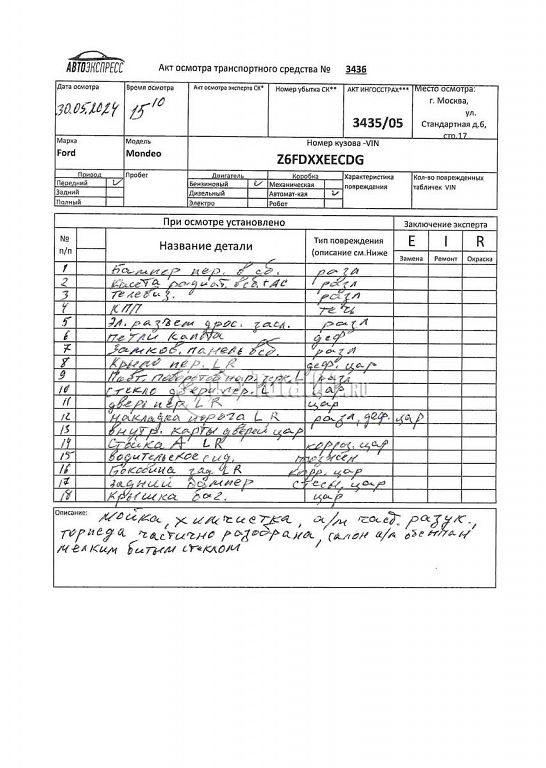 АВТОЭКСПРЕСС
Акт осмотра транспортного средства № 3436
Дата осмотра Время осмотра Акт осмотра эксперта СК* Номер убытка СК** АКТ ИНГОССТРАХ*** Место осмотра:
30.05.2024 15 10 3435/05 г. Москва,
ул.
Стандартная д.6,
стр.17
Марка Модель Номер кузова -VIN
Ford Mondeo Z6FDXXEECDG
Привод Пробег Двигатель Коробка Характеристика повреждения Кол-во поврежденных табличек VIN
Передний Бензиновый Механическая
Задний Дизельный Автомат-кая
Полный Электро Робот
При осмотре установлено Заключение эксперта
№ п/п Название детали Тип повреждения (описание см.Ниже E I R
Замена Ремонт Окраска
1 Бампер пер. в сб. разл
2 Кассета радиат. в сб. с АС разл
3 Телевиз. разл
4 КПП течь
5 Эл. разъем дрос. засл. разл
6 петли капота деф
7 Замков. панель в сб. разл
8 Крыло пер. LR деф. цар
9 Повт. поворотов нар. зерк. L разл
10 стекло двери пер. L цар
11 дверь пер. LR цар
12 накладка порога LR разл, деф. цар
13 внутр. карты дверей цар
14 Стойка А LR корроз. цар
15 водительское сид.
16 Боковина зад LR корр. цар
17 Задний бампер цар
18 Крышка баг. цар
Описание: мойка, химчистка, а/м част. разук.,
торпеда частично разобрана, салон а/м обсыпан
мелким битым стеклом